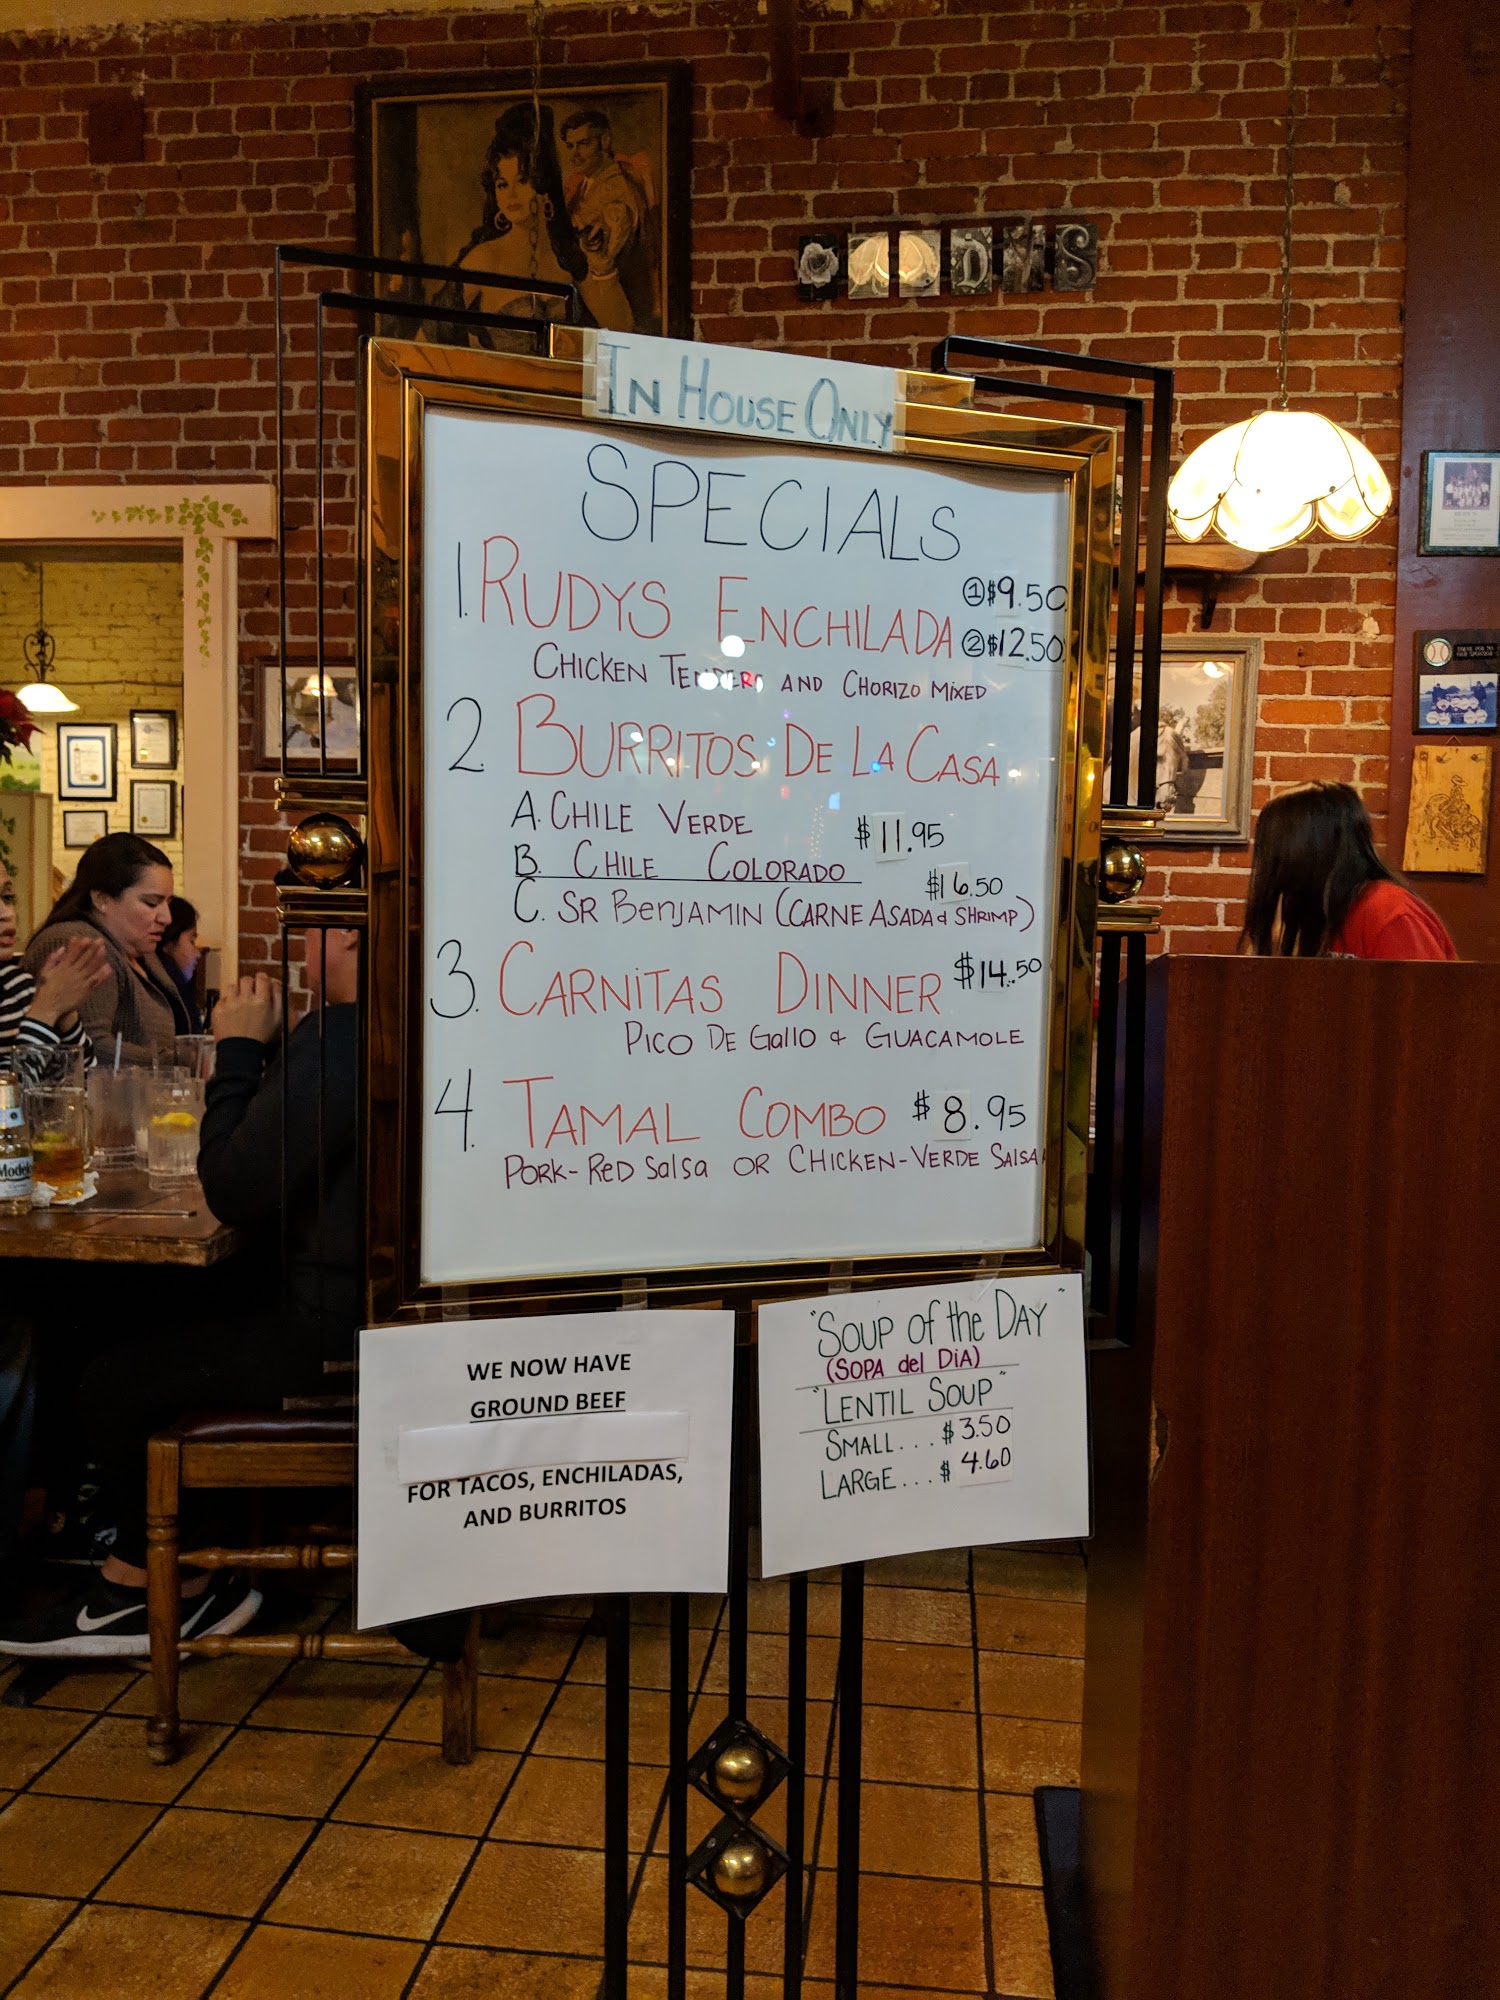 IN HOUSE ONLY
SPECIALS
1. RUDYS ENCHILADA ① $9.50
② $12.50
CHICKEN TENDERS AND CHORIZO MIXED
2. BURRITOS DE LA CASA
A. CHILE VERDE $11.95
B. CHILE COLORADO
$16.50
C. SR BENJAMIN (CARNE ASADA & SHRIMP)
3. CARNITAS DINNER $14.50
PICO DE GALLO & GUACAMOLE
4. TAMAL COMBO $8.95
PORK-RED SALSA OR CHICKEN-VERDE SALSA
WE NOW HAVE
GROUND BEEF
FOR TACOS, ENCHILADAS,
AND BURRITOS
"SOUP OF the DAY"
(SOPA del DIA)
"LENTIL SOUP"
SMALL... $3.50
LARGE... $4.60
Modelo